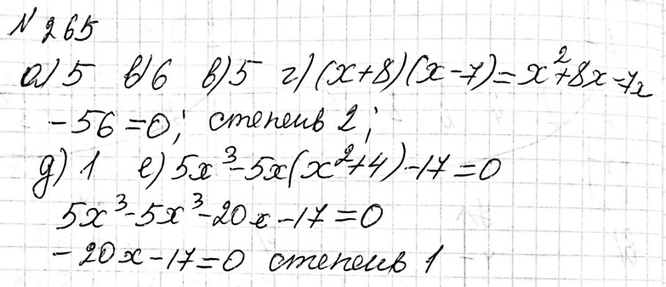 № 265
а) 5 в) 6 в) 5 г) (x+8)(x-7)=x²+8x-7x
-56=0; степень 2;
д) 1 е) 5x³-5x(x²+4)-17=0
5x³-5x³-20x-17=0
-20x-17=0 степень 1